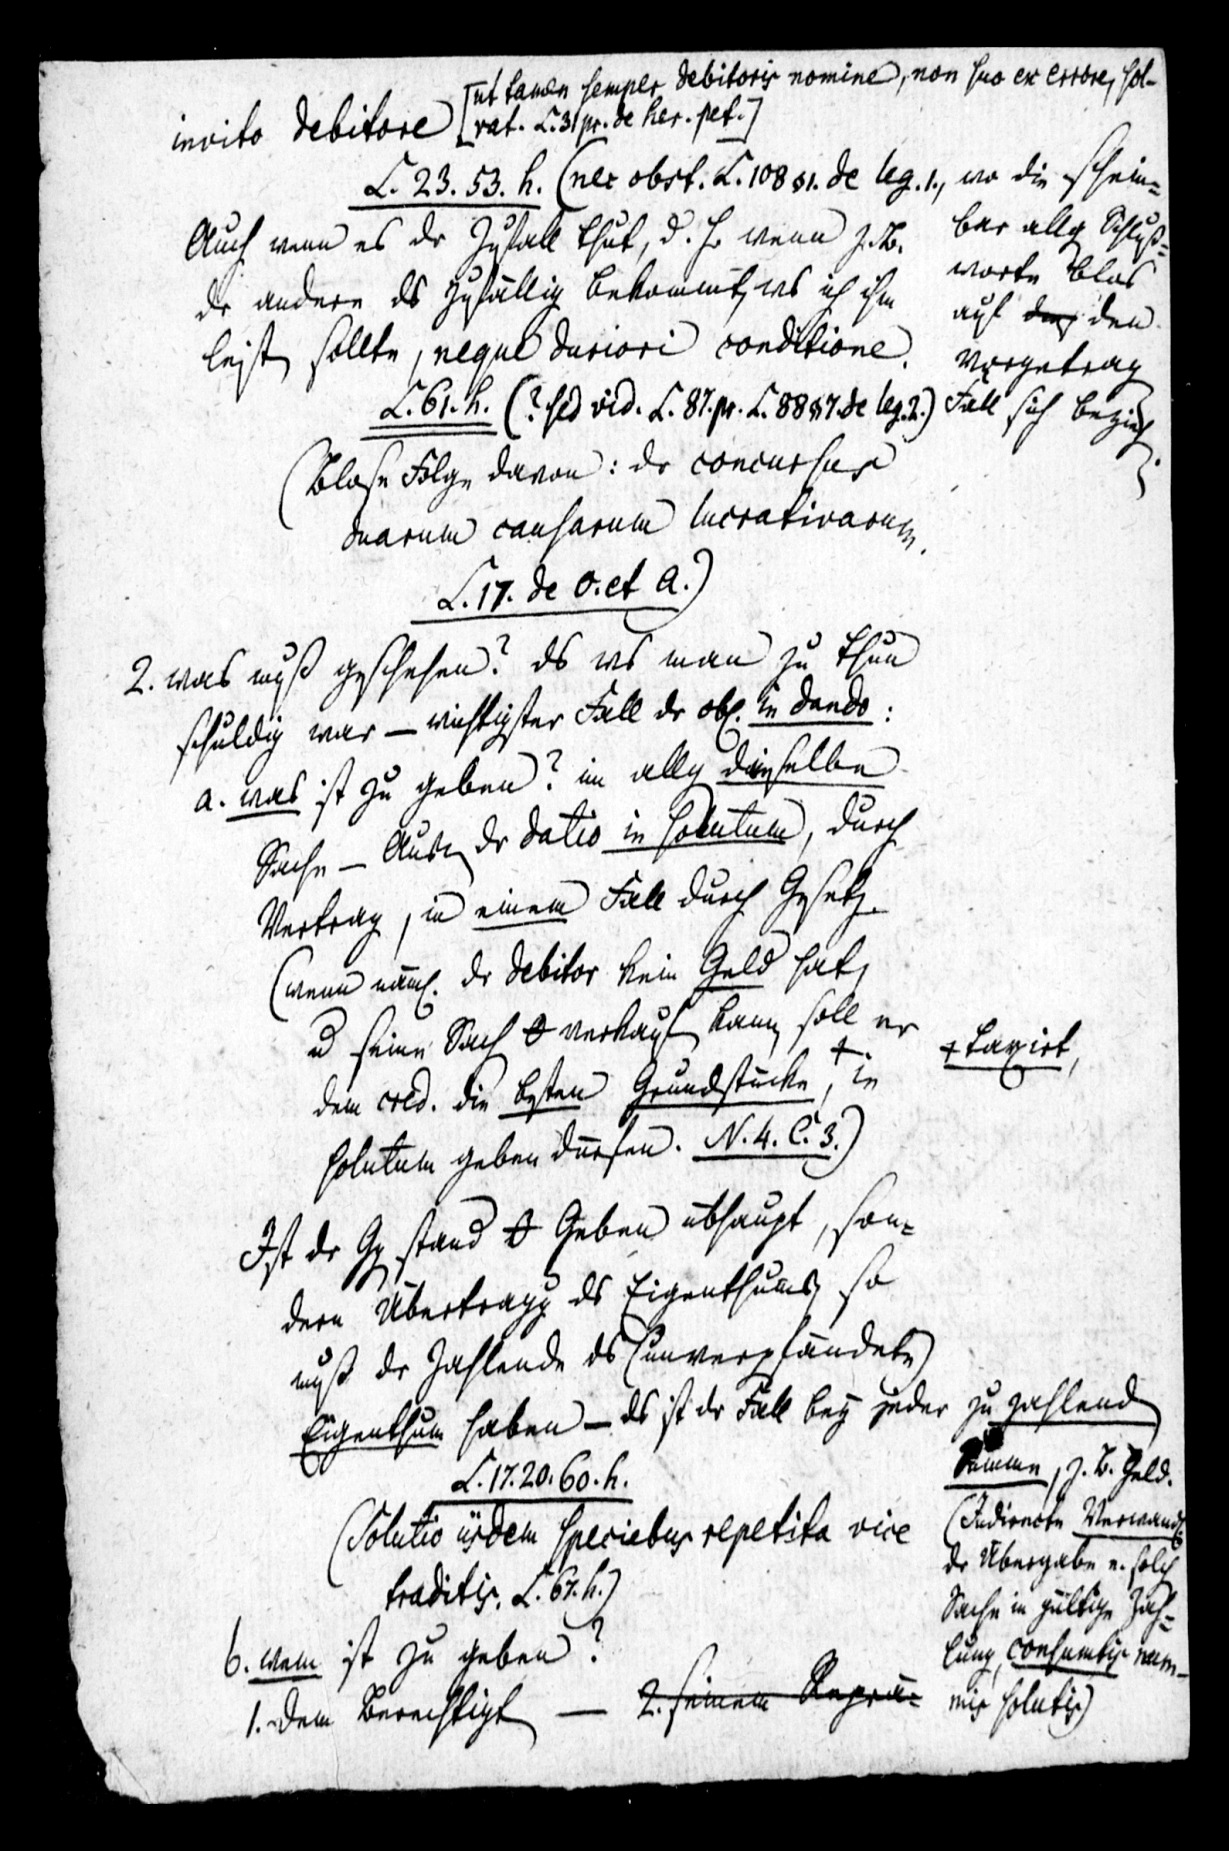 [ut tamen semper debitoris nomine, non suo ex errore, sol-
invito debitore vat. L.31 pr. de her. pet.]
L. 23. 53. h. (nec obst. L. 108 §1. de leg. 1., wo die schein-
bar allg Schluß-
worte blos
auf den
vorgetrag
Fall sich bezieh
Auch wenn es dr Zufall thut, d. h. wenn z. B.
dr andere ds zufällig bekommt, ws ich ihm
leist sollte, neque duriori conditione.
L. 61. h. (? sed vid. L. 87. pr. L. 88 §7. de leg. 2.)
(Blose Folge davon: dr concursus
duarum causarum lucrativarum.
L. 17. de O. et A.)
2. was muß geschehen? ds ws man zu thun
schuldig war – wichtigster Fall dr obl. in dando:
a. was ist zu geben? im allg dieselbe
Sache – Ausn dr datio in solutum, durch
Vertrag, in einem Fall durch Gesetz.
(wenn näml. dr debitor kein Geld hat,
u seine Sach verkauf kann, soll er
dem cred. die besten Grundstücke, + in
+ taxirt,
solutum geben dürfen. N. 4. C. 3.)
Ist dr Gg stand Geben übhaupt, son-
dern Übertragg ds Eigenthums, so
muß dr Zahlende ds (unverpfändete)
Eigenthum haben – ds ist dr Fall bey jeder zu zahlend
Summe, z. B. Geld.
L. 17. 20. 60. h.
(Indirecte Verwandl
dr Übergabe e. solch
Sache in gültige Zah-
lung, consumtis num-
mis solutis)
(Solutio iisdem speciebus repetita vice
traditis. L. 67. h.)
b. wem ist zu geben?
1. dem Berechtigt — 2. seinem Reprä-